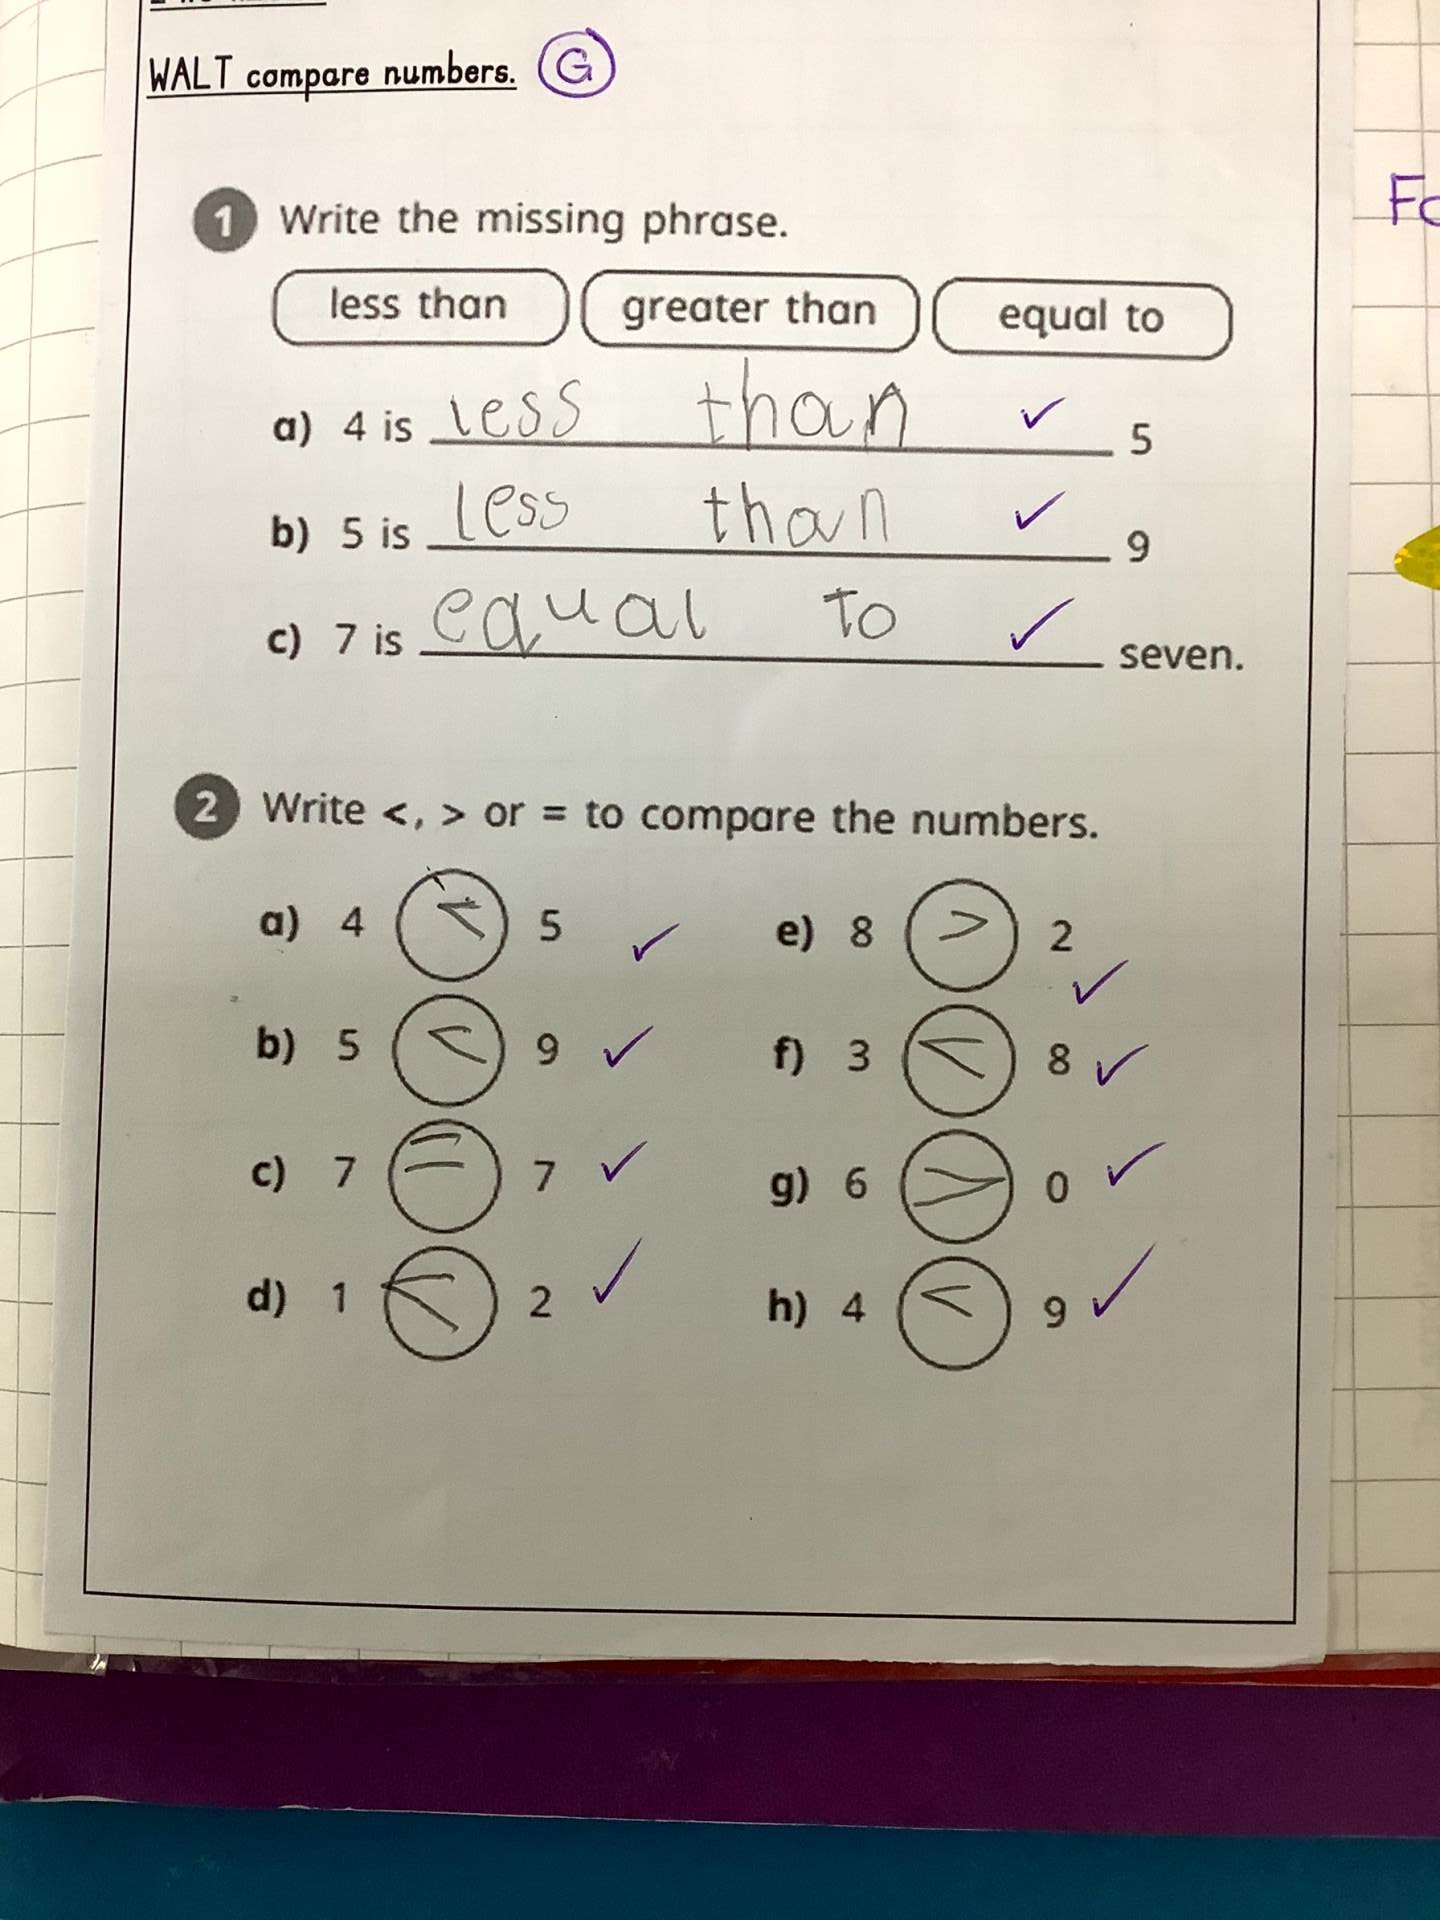 WALT compare numbers. G
1 Write the missing phrase.
less than greater than equal to
a) 4 is less than ✓ 5
b) 5 is less than ✓ 9
c) 7 is equal to ✓ seven.
2 Write <, > or = to compare the numbers.
a) 4 < 5 ✓ e) 8 > 2 ✓
b) 5 < 9 ✓ f) 3 < 8 ✓
c) 7 = 7 ✓ g) 6 > 0 ✓
d) 1 < 2 ✓ h) 4 < 9 ✓